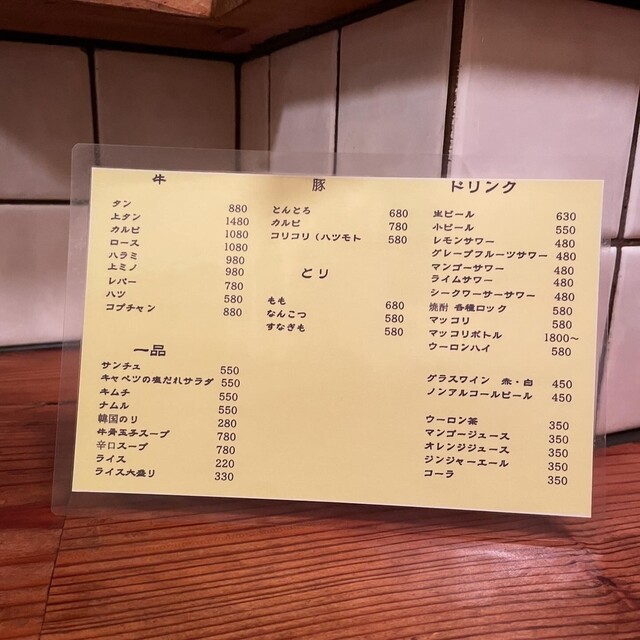 牛
タン 880
上タン 1480
カルビ 1080
ロース 1080
ハラミ 980
上ミノ 980
レバー 780
ハツ 580
コプチャン 880
一品
サンチュ 550
キャベツの塩だれサラダ 550
キムチ 550
ナムル 550
韓国のり 280
牛骨玉子スープ 780
辛口スープ 780
ライス 220
ライス大盛り 330
豚
とんとろ 680
カルビ 780
コリコリ（ハツモト 580
とり
もも 680
なんこつ 580
すなぎも 580
ドリンク
生ビール 630
小ビール 550
レモンサワー 480
グレープフルーツサワー 480
マンゴーサワー 480
ライムサワー 480
シークワーサーサワー 480
焼酎 各種ロック 580
マッコリ 580
マッコリボトル 1800〜
ウーロンハイ 580
グラスワイン 赤・白 450
ノンアルコールビール 450
ウーロン茶 350
マンゴージュース 350
オレンジジュース 350
ジンジャーエール 350
コーラ 350